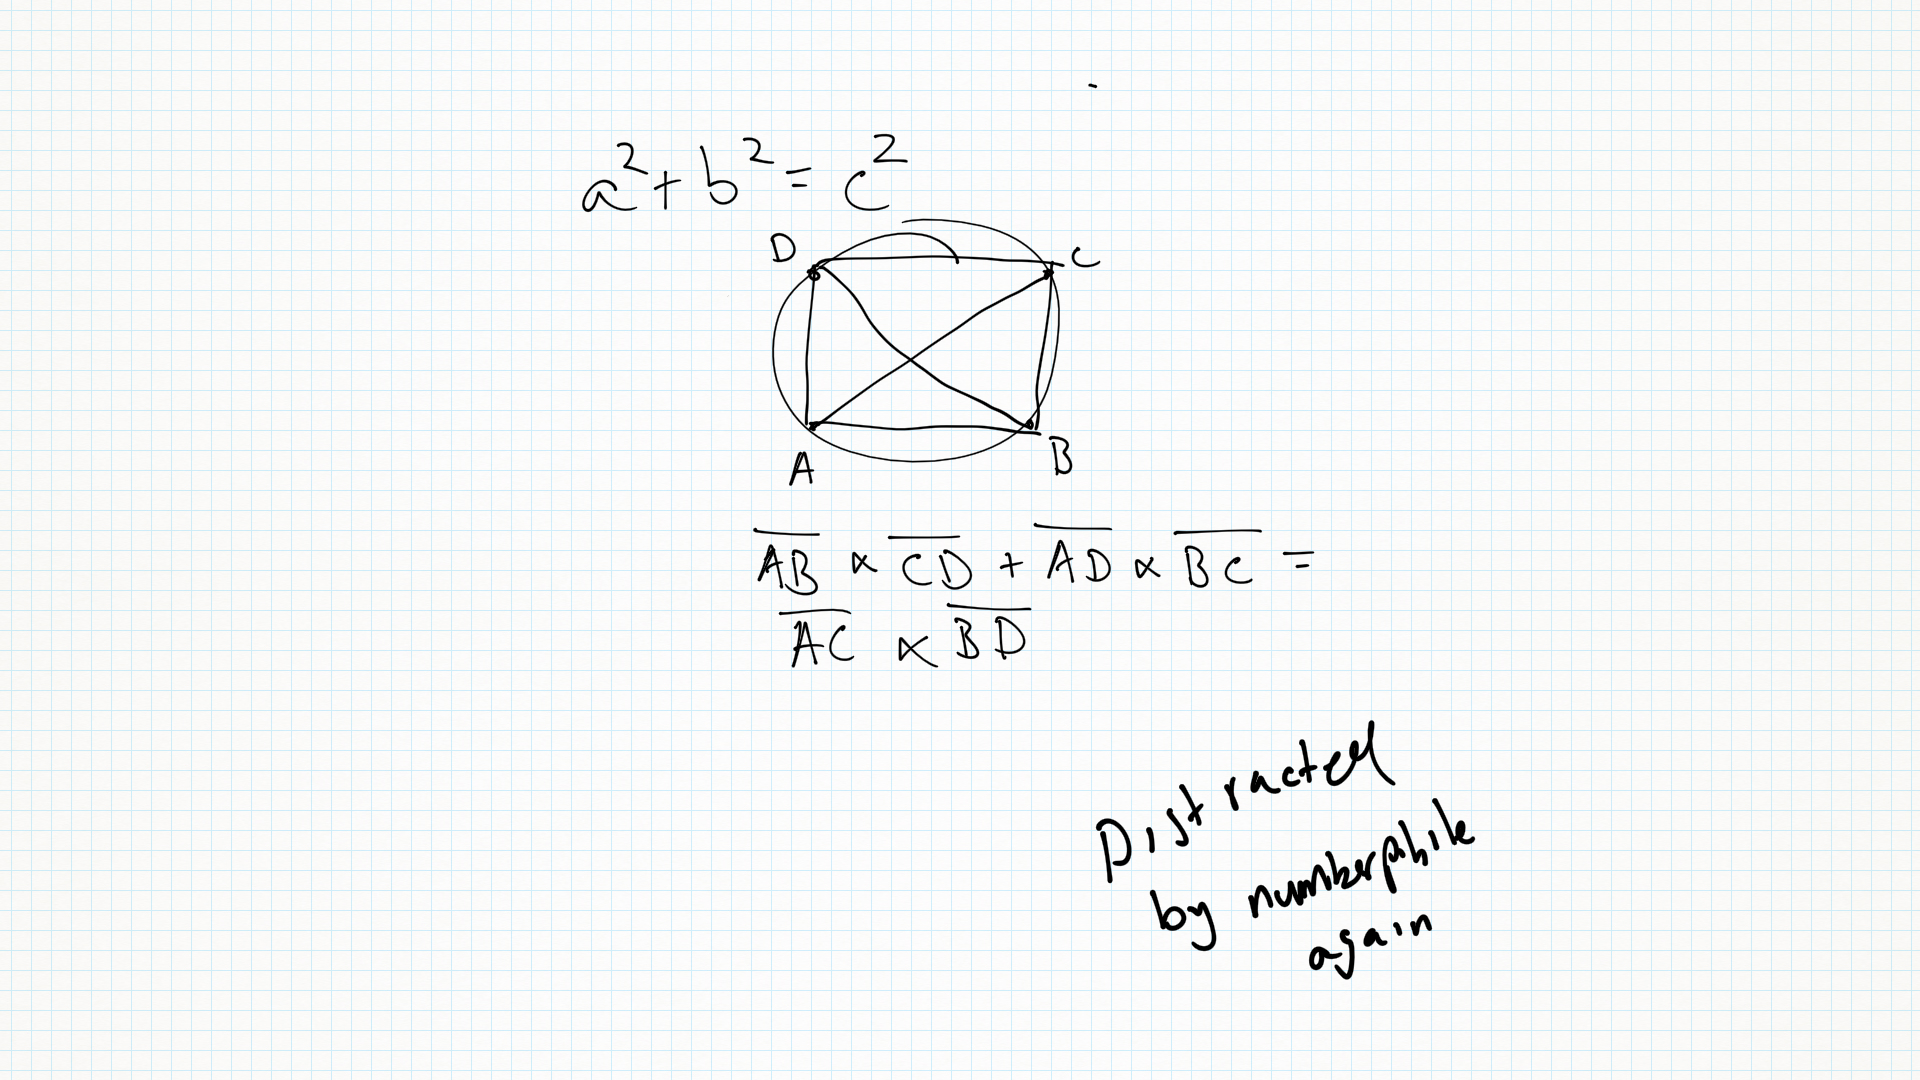 a² + b² = c²
D C
A B
A̅B̅ × C̅D̅ + A̅D̅ × B̅C̅ =
A̅C̅ × B̅D̅
Distracted
by numberphile
again